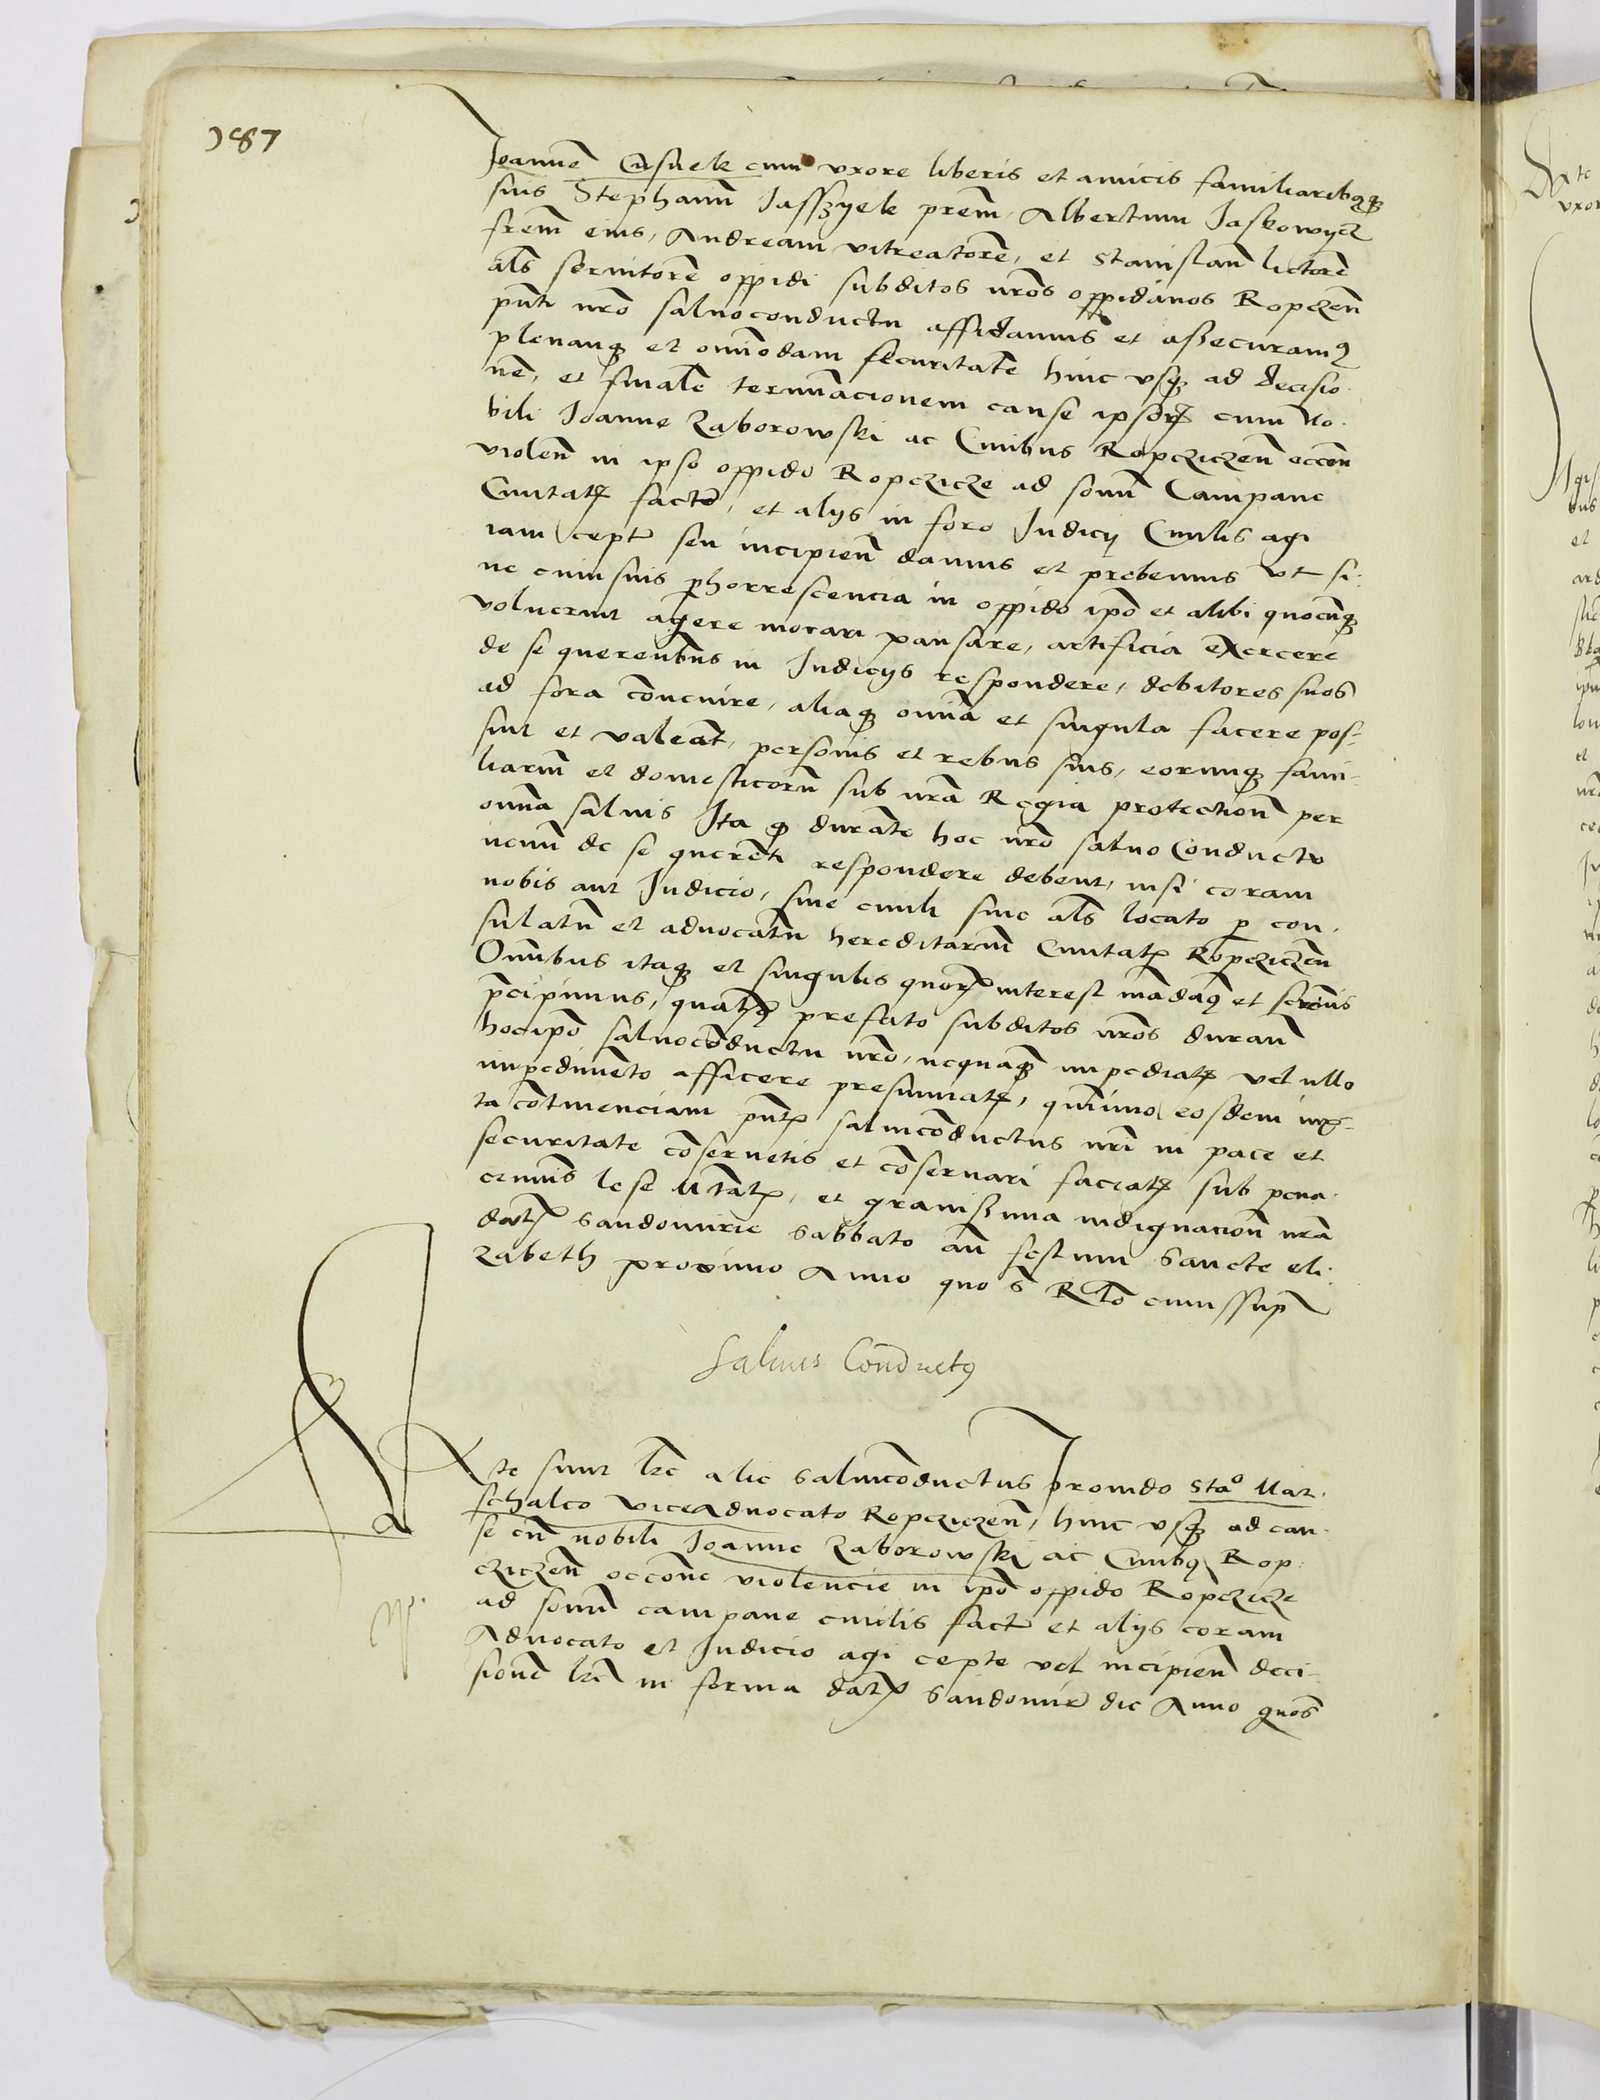 187
Joannem cum uxore liberis et amicis familiaribusq̃
suis Stephanũ Jasszyek p̃rem̃, Albertum Jaskowycz
fr̃em̃ eius, Andream vitreatorẽ, et Stanislaũ lictorẽ
als̃ servitorẽ oppidi subditos nr̃os oppidanos Ropczeñ
pñti nr̃o salvoconductu affidamus et assecuramꝰ
plenamq̃ et om̃imodam securitatẽ hinc usq̃ ad decisio-
nẽ, et finalẽ terminacionem cause ipsorũ cum No-
bili Joanne Zaborowski ac Civibus Ropcziczeñ occõn
violeñ in ipso oppido Ropczicze ad sonũ Campane
Civitatis facte, et alijs in foro Judicij Civilis agi
iam cept̃ seu incipieñ damus et prebemus ut si-
ne cum suis p̱horrescencia in oppido ip̃o et alibi quocũq̃
voluerint agere morari pausare, artificia exercere
de se querentibus in Judicijs respondere, debitores suos
ad fora convenire, aliaq̃ omnĩa et singula facere pos-
sint et valeãt, personis et rebus suis, eorumq̃ fami-
liariũ et domesticorũ sub nr̃a Regia protectioñ per
omnĩa salvis Ita q̃ durãte hoc nr̃o salvo Conductu
nemĩ de se querẽti respondere debent, nisi coram
nobis aut Judicio, sive civili sive als̃ locato p̱ con-
sulatũ et advocatũ hereditariũ Civitatis Ropcziczeñ
Omĩbus itaq̃ et singulis quorũ interest mãdamꝰ et
p̃cipimus, quatenꝰ prefato subditos nr̃os durañ
hoc ip̃o salvocõductu nr̃o, nequaq̃ impediatis vel ullo
impedimẽto afficere presumatis, quinimo eosdem iux-
ta cõtinenciam pñtis salviconductus nr̃i in pace et
securitate cõservetis et cõservari faciatis sub pena
criminis lese Mtatis, et gravissima indignacioñ nr̃a
datis Sandomirie Sabbato añ festum Sancte eli-
zabeth proximo Anno quo s̃
Salvus Cõductꝰ
Date sunt lr̃e alie salvicõductus provido Stao Mar-
schalco viceadvocato Ropcziczeñ, hinc usq̃ ad cau-
se cũ nobili Joanne Zaborowski ac Civibꝰ Rop-
cziczeñ occõne violencie in ip̃o oppido Ropczicze
ad sonũ campane civilis fact̃ et alijs coram
Advocato et Judicio agi cepte vel incipieñ deci-
sionẽ lr̃e in forma datis Sandomir̃ die Anno quo s̃